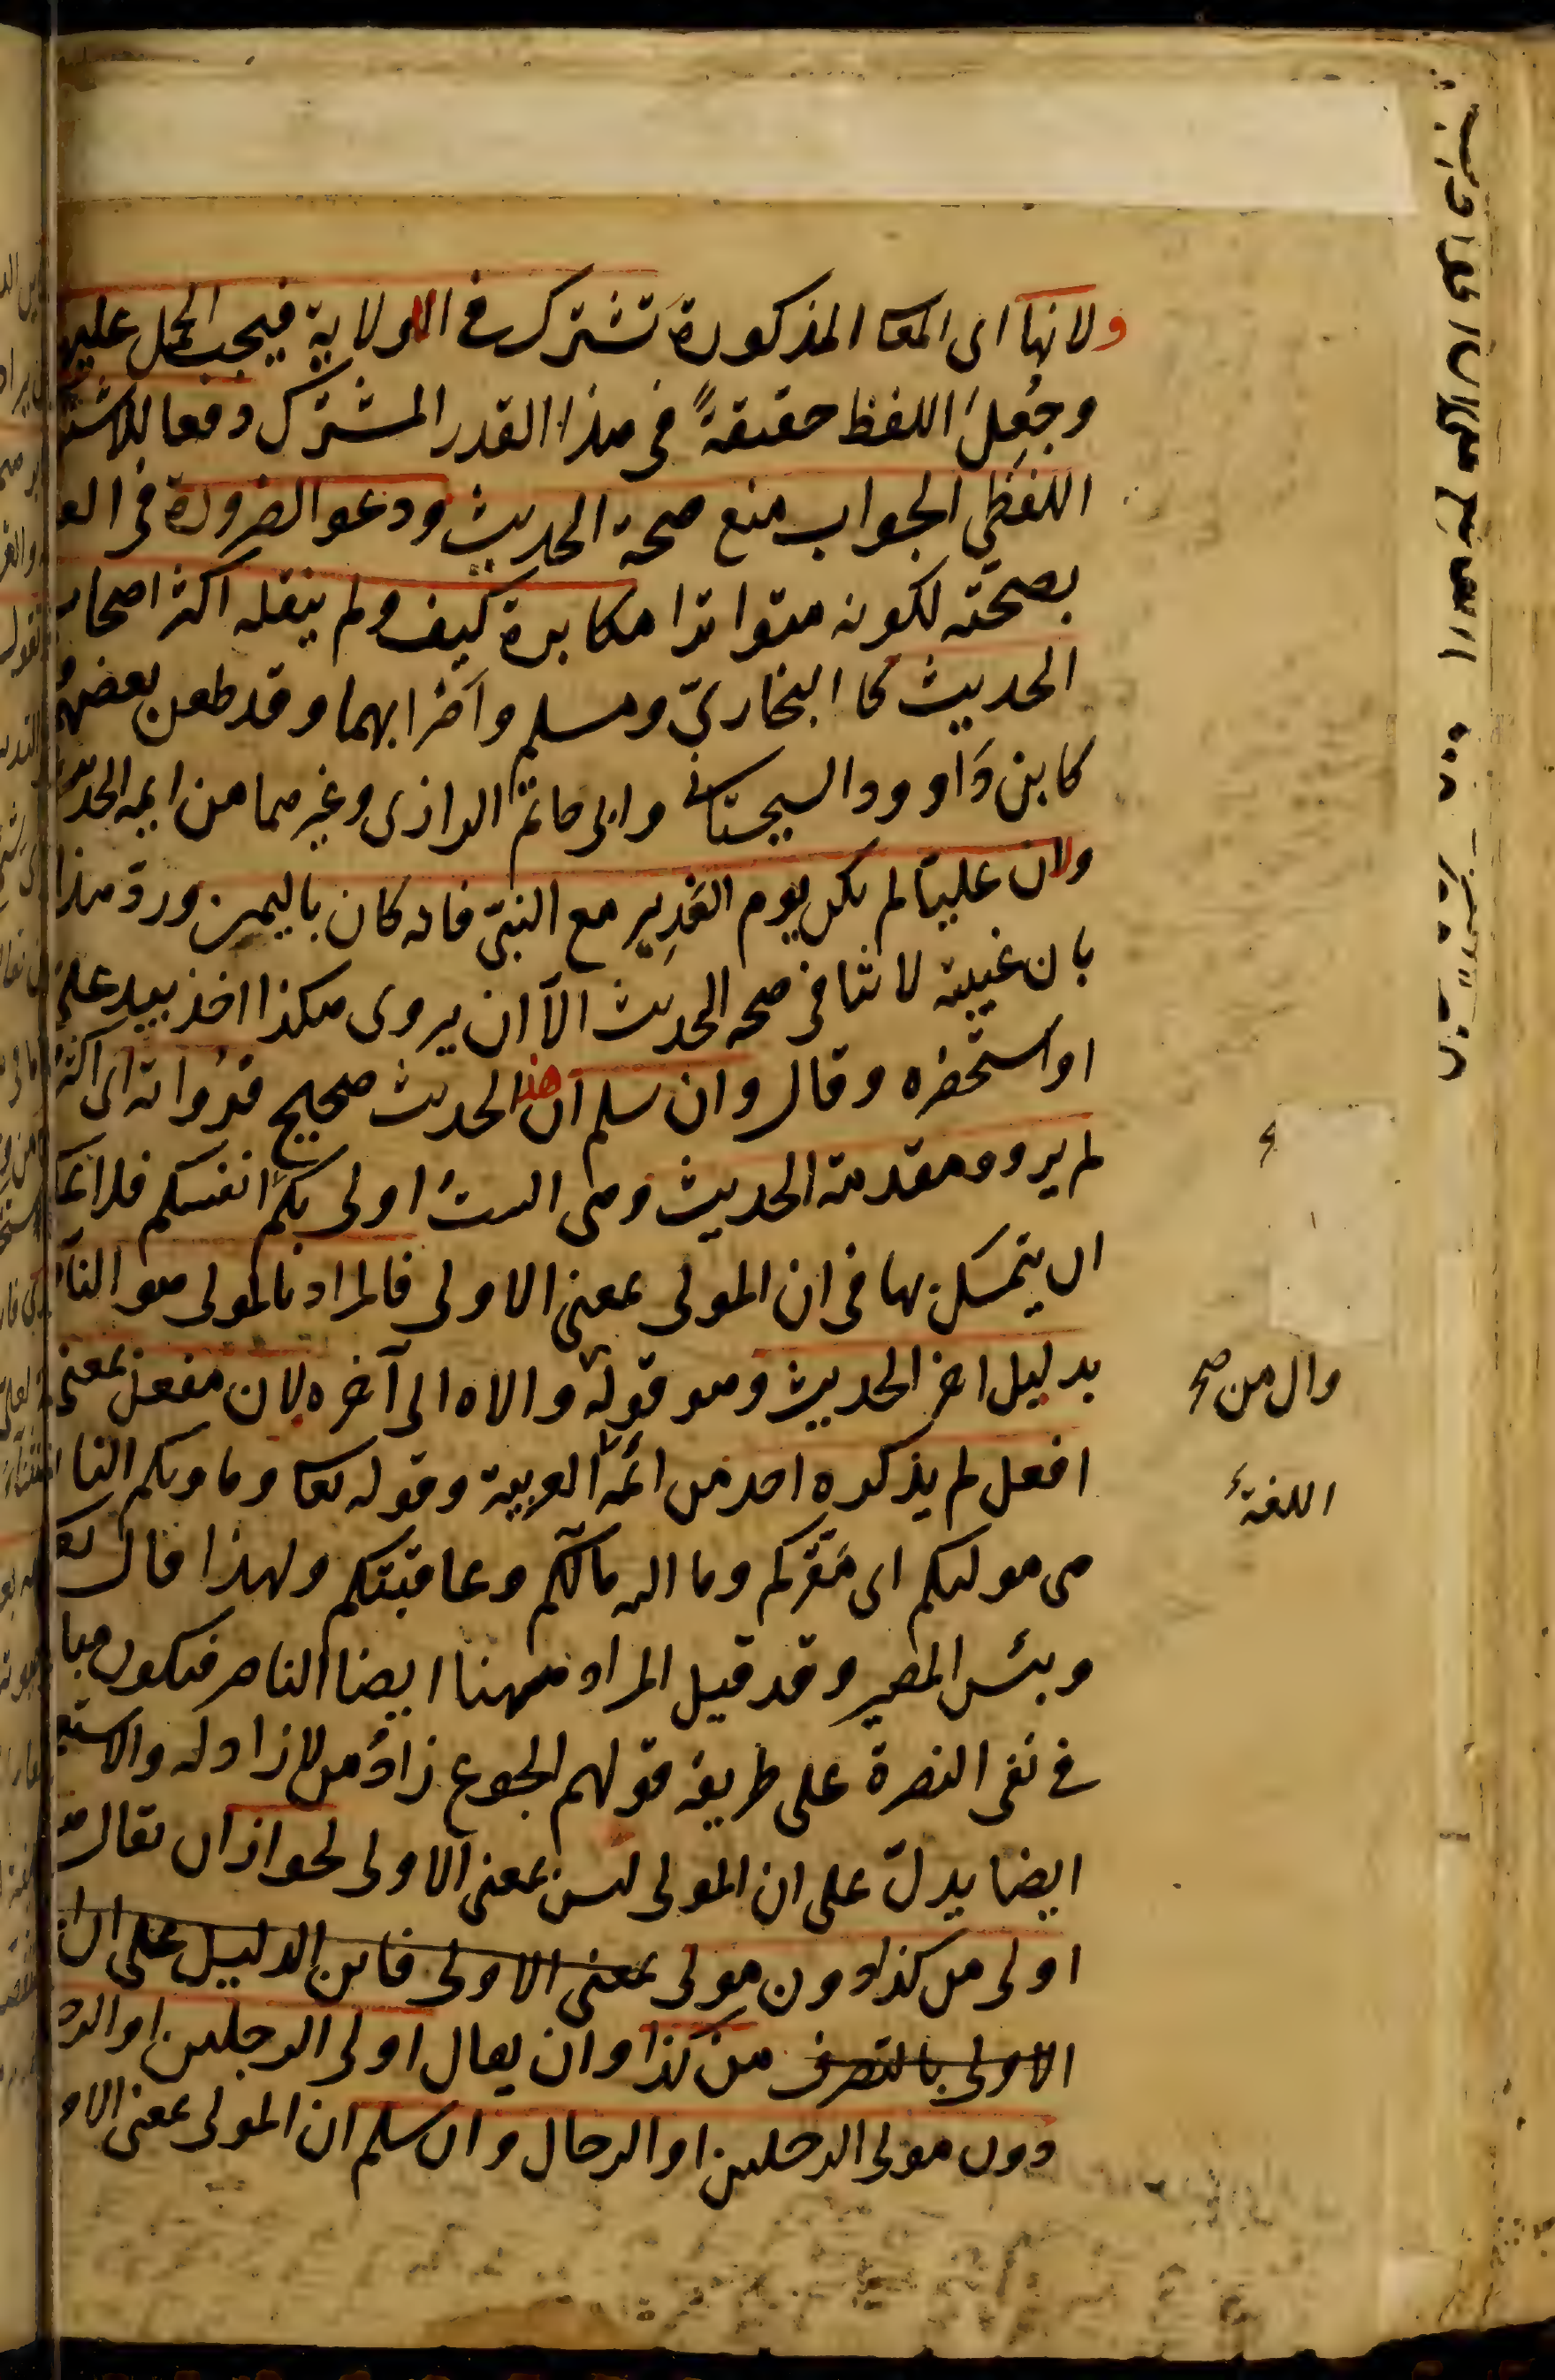 ولانها اى المعا المذكورة تشترك فى الولاية فيجب الحمل عليها
وجُعِلَ اللفظ حقيقةً فى هذا القدر المشترك دفعا للاشتر
اللفظي الجواب منع صحة الحديث ودعو الضرورة فى الع
بصحّته لكونه متواترا مكابرة كيف ولم ينقله اكثر اصحاب
الحديث كا البخاريّ ومسلم وأضرابهما وقد طعن بعضهم
كابن دَاوود السجستانى وابى حاتم الرازى وغيرهما من ايمه الحديث
ولان عليّا لم يكن يوم الغَدِير مع النبىّ فانه كان باليمن وردّ هذا
بان غيبته لا تنافى صحه الحديث الاّ ان يروى هكذا اخذ بيد علىّ
او استحضره وقال وان سلم ان هذا الحديث صحيح فرُواته اى اكثرُ
لم يرووا مقدمة الحديث وهى الستُ اولى بكم انفسكم فلا يمكن
ان يتمسّك بها فى ان المولى بمعنى الاولى فالمراد بالمولى هو النا
بدليل اخر الحديث وهو قوله والاه الى آخره لان مفعل بمعنى
افعل لم يذكره احد من ائمّه العربية وقوله تعا وماويكم النا
هى موليكم اى مَقَرّكم وما اليه مآلكم وعاقبتكم ولهذا قال تع
وبئس المصير وقد قيل المراد ههنا ايضا الناصر فيكون مبا
فى نفى النصرة على طريقه قولهم الجوع زادُ من لا زاد له والاستع
ايضا يدلّ على ان المولى ليس بمعنى الاولى لجواز ان يقال هو
اولى من كذا دون مولى بمعنى الاولى فاين الدليل على ان
الاولى بالتصرف من كذا وان يقال اولى الرجلين او الر
دون مولى الرجلين او الرجال وان سلم ان المولى بمعنى الاو
وال من صح
اللغة